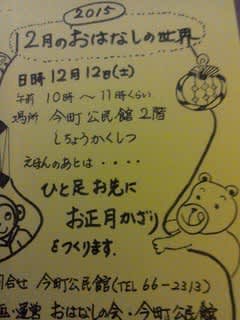 2015
12月のおはなしの世界
日時 12月12日(土)
午前 10時〜11時くらい
場所 今町公民館 2階
しちょうかくしつ
えほんのあとは・・・・
ひと足お先に
お正月かざり
をつくります.
合せ 今町公民館(TEL 66-2313)
・運営 おはなしの会・今町公民館